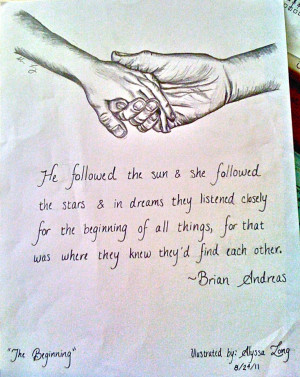 He followed the sun & she followed
the stars & in dreams they listened closely
for the beginning of all things, for that
was where they knew they'd find each other.
~Brian Andreas
"The Beginning"
Illustrated by: Alyssa Long
8/24/11